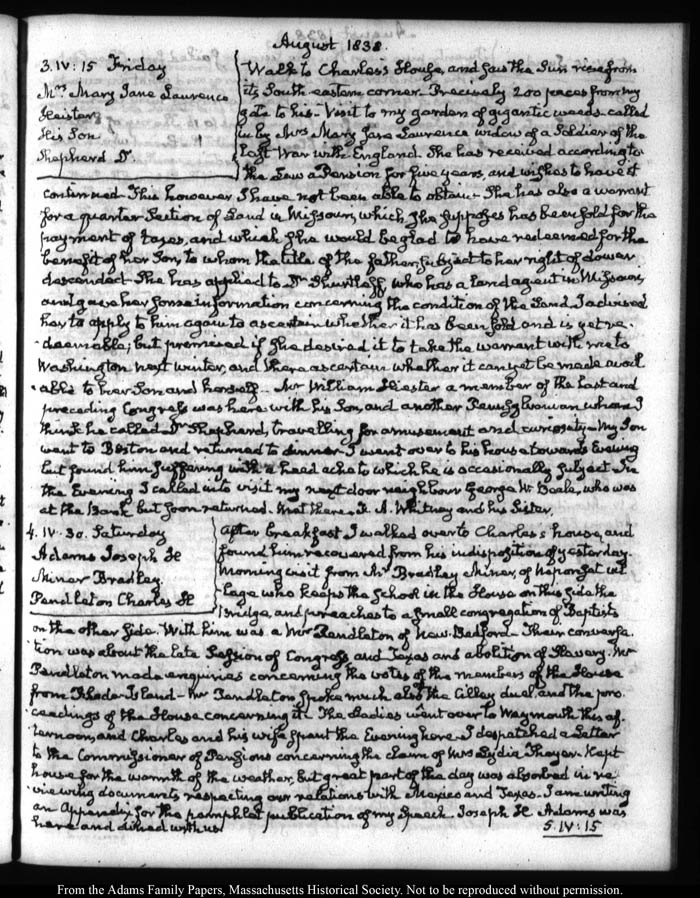 August 1838.
3. IV: 15 Friday
Mrs Mary Jane Lawrence
Heister
His Son
Shepherd Dr.
Walk to Charles's House, and saw the Sun rise from
its South eastern corner. Precisely 200 paces from my
gate to his. Visit to my garden of gigantic weeds. called
in by Mrs Mary Jane Lawrence widow of a Soldier of the
last War with England. She has received according to
the Law a Pension for five years, and wishes to have it
continued. This however I have not been able to obtain. She has also a warrant
for a quarter Section of Land in Missouri, which she supposes has been sold for the
payment of taxes, and which she would be glad to have redeemed for the
benefit of her Son, to whom the title of the father, subject to her right of dower
descended. She has applied to Dr Shurtleff, who has a land agent in Missouri,
and gave her some information concerning the condition of the Land. I advised
her to apply to him again to ascertain whether it has been sold and is yet re-
deemable; but promised if she desired it to take the warrant with me to
Washington next winter, and there ascertain whether it can yet be made avail-
able to her Son and herself. Mr William Hiester a member of the last and
preceding Congress was here with his Son, and another Pennsylvanian whom I
think he called Dr Shepherd, travelling for amusement and curiosity. My Son
went to Boston and returned to dinner. I went over to his house towards Evening
but found him suffering with a head ache to which he is occasionally subject. In
the Evening I called in to visit my next door neighbour George W. Beale, who was
at the Bank but soon returned. Met there A. Whitney and his Sister.
4. IV. 30. Saturday
Adams Joseph H
Miner Bradley.
Pendleton Charles H
After breakfast I walked over to Charles's house, and
found him recovered from his indisposition of yesterday.
Morning visit from Mr Bradley Miner, of Neponset vil-
lage who keeps the School in the House on this side the
Bridge, and preaches to a small congregation of Baptists
on the other side. With him was a Mr Pendleton of New-Bedford. Their conversa-
tion was about the late Session of Congress and Texas and abolition of Slavery. Mr
Pendleton made enquiries concerning the votes of the members of the House
from Rhode-Island. Mr Pendleton spoke much also the Cilley duel and the pro-
ceedings of the House concerning it. The Ladies went over to Weymouth this af-
ternoon, and Charles and his wife spent the Evening here. I despatched a Letter
to the Commissioner of Pensions concerning the claim of Mrs Lydia Thayer. Kept
house for the warmth of the weather, but great part of the day was absorbed in re-
viewing documents respecting our relations with Mexico and Texas. I am writing
an Appendix for the pamphlet publication of my Speech. Joseph H Adams was
here and dined with us
5. IV: 15
From the Adams Family Papers, Massachusetts Historical Society. Not to be reproduced without permission.